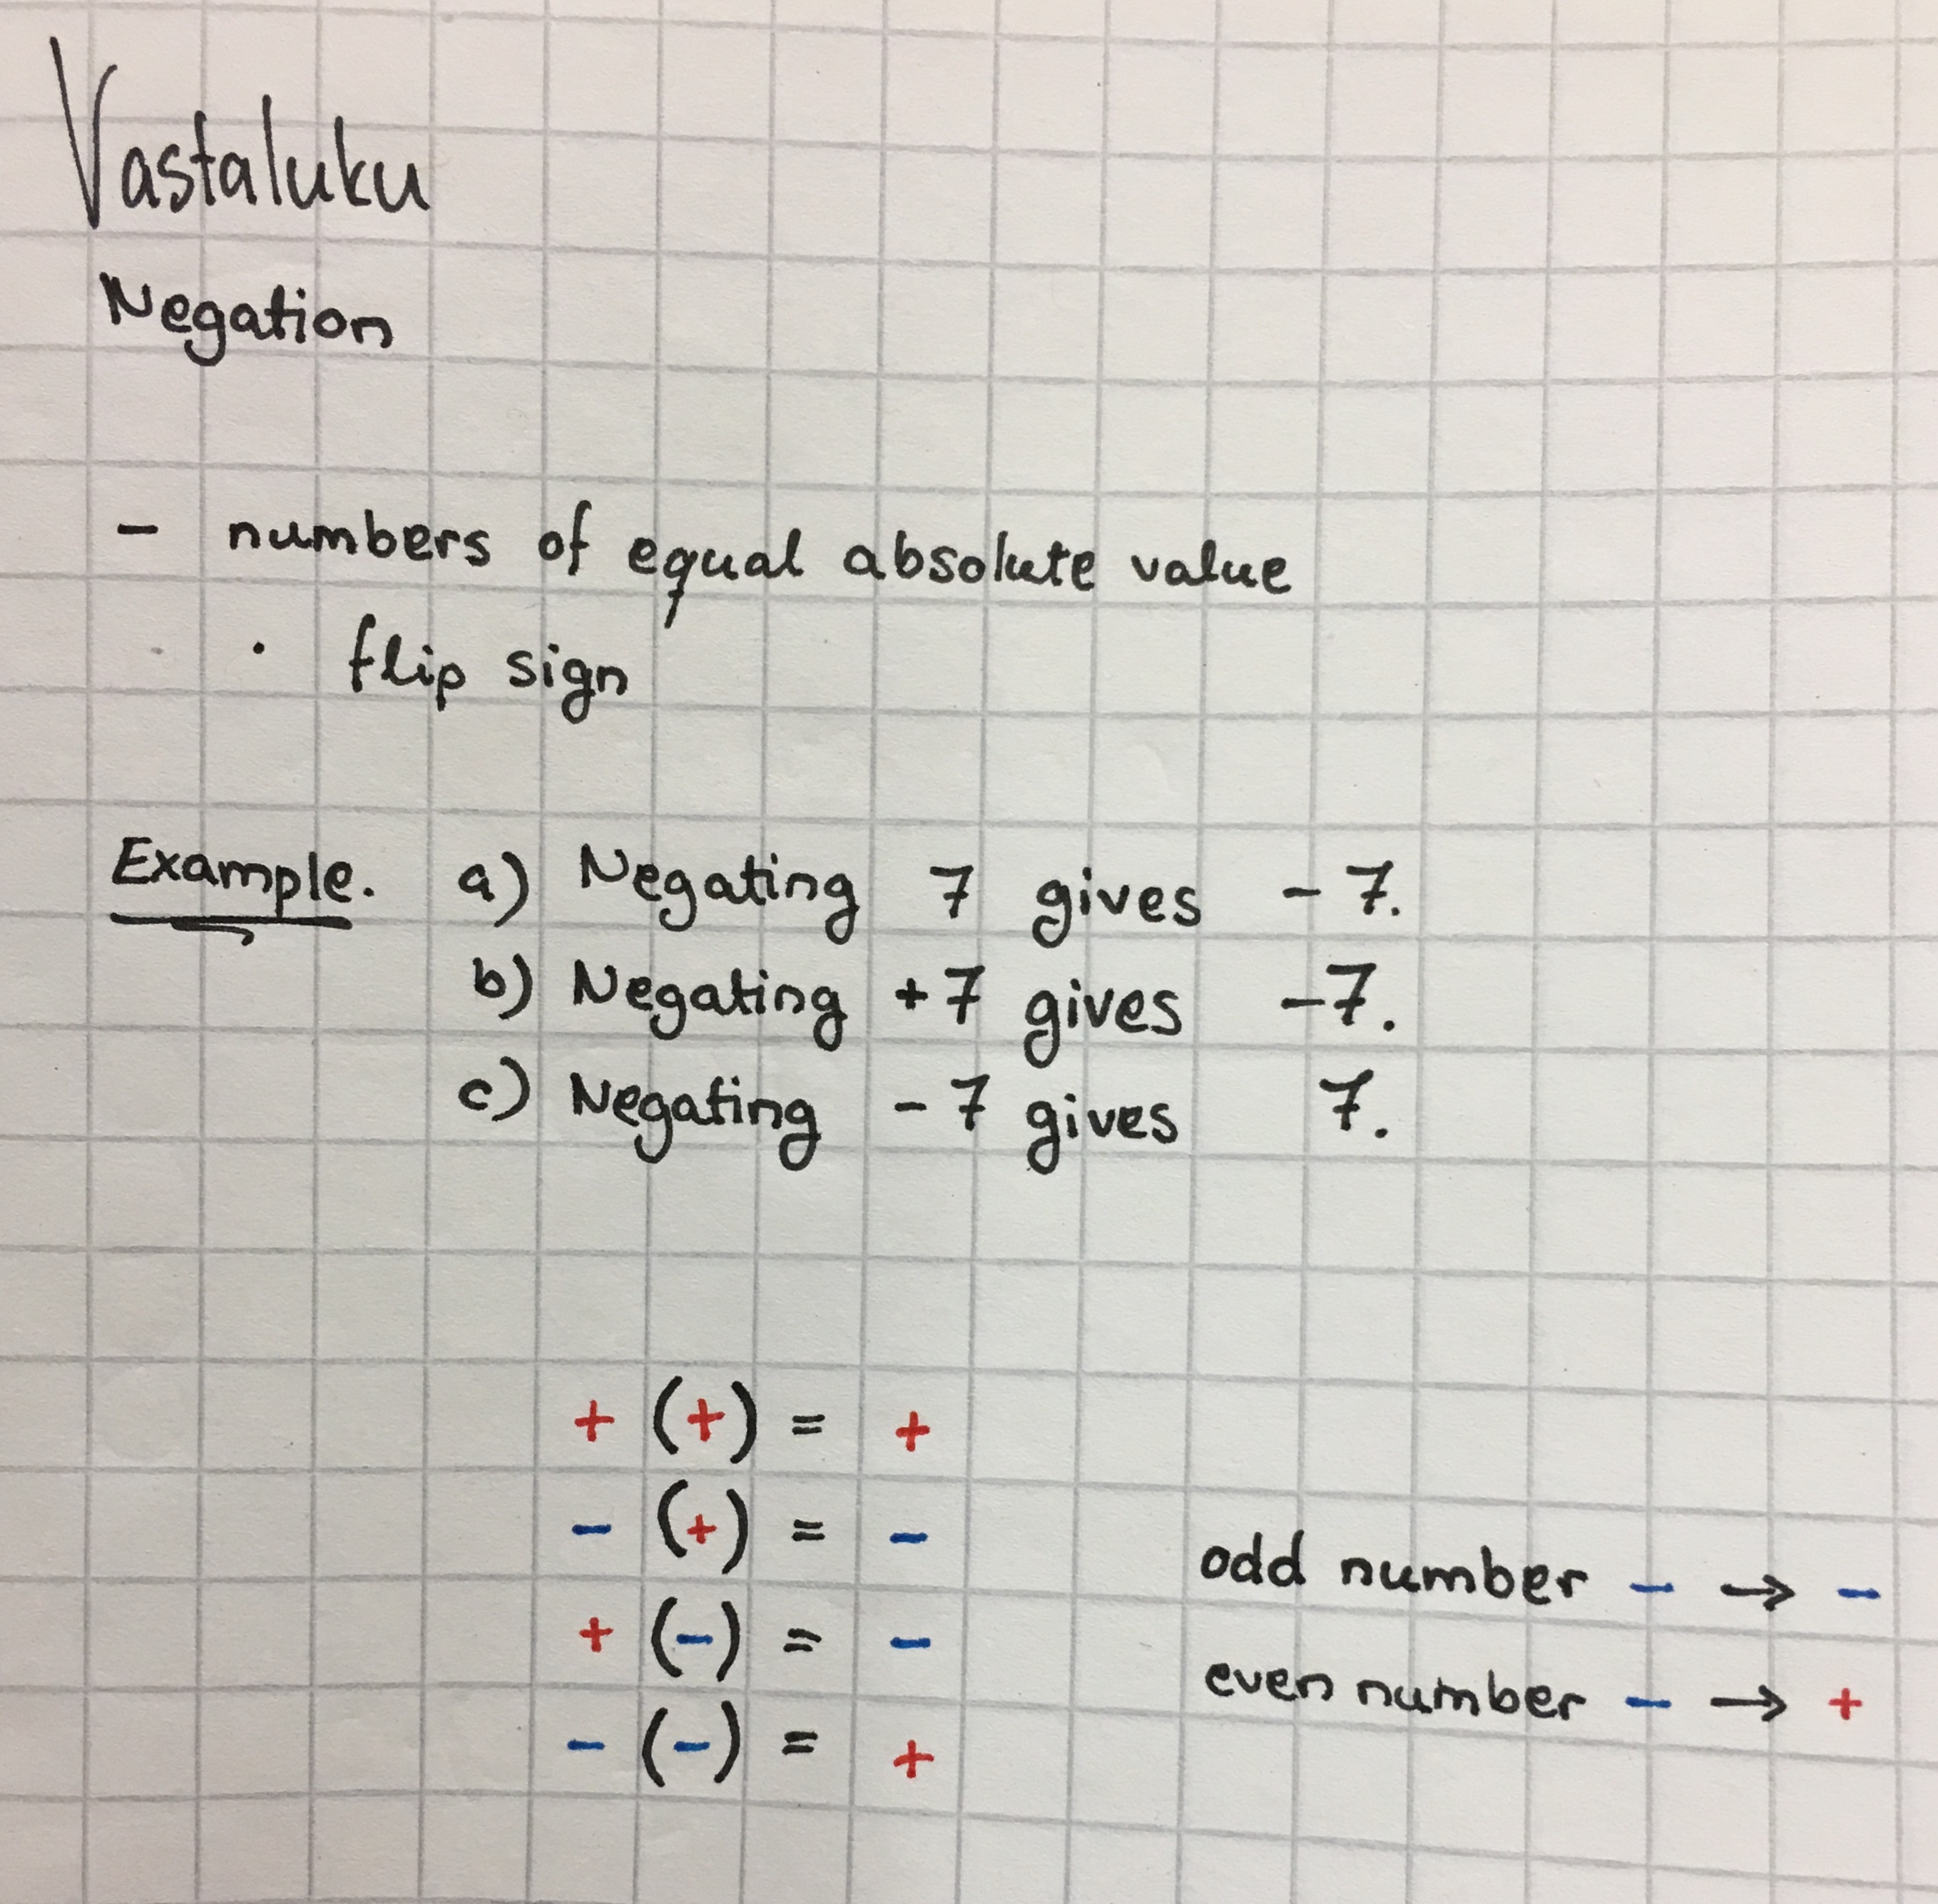 Vastaluku
Negation
- numbers of equal absolute value
· flip sign
Example. a) Negating 7 gives -7.
b) Negating +7 gives -7.
c) Negating -7 gives 7.
+ (+) = +
- (+) = -
+ (-) = -
- (-) = +
odd number - → -
even number - → +